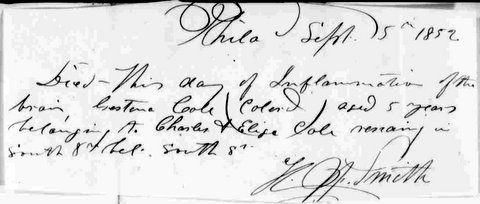 Phila Sept. 5th 1852
Died - This day of Inflammation of the
brain, Cole (Colord) aged 5 years
belonging to Charles & Eliza Cole residing in
South 8th bel. South St.
Smith